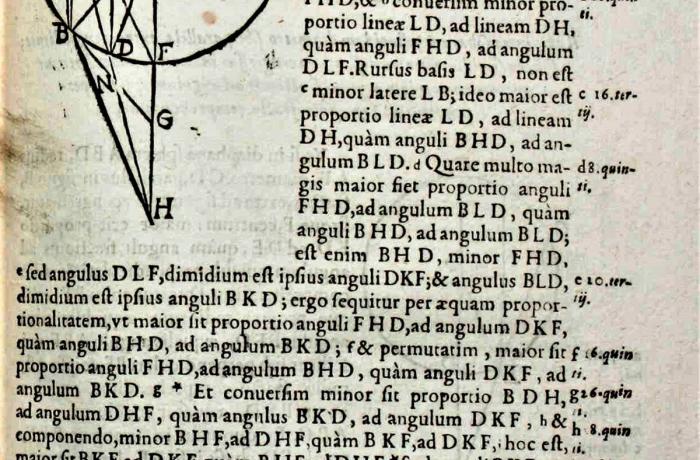 FHD,& conuersim minor pro-
portio lineæ LD, ad lineam DH,
quàm anguli FHD, ad angulum
DLF. Rursus basis LD, non est
c minor latere LB; ideo maior est
proportio lineæ LD, ad lineam
DH, quàm anguli BHD, ad an-
gulum BLD. d Quare multo ma-
gis maior fiet proportio anguli
FHD, ad angulum BLD, quàm
anguli BHD, ad angulum BLD;
est enim BHD, minor FHD,
e sed angulus DLF, dimidium est ipsius anguli DKF; & angulus BLD,
dimidium est ipsius anguli BKD; ergo sequitur per æquam propor-
tionalitatem, vt maior sit proportio anguli FHD, ad angulum DKF,
quàm anguli BHD, ad angulum BKD; f & permutatim, maior sit
proportio anguli FHD, ad angulum BHD, quàm anguli DKF, ad
angulum BKD. g * Et conuersim minor sit proportio BDH,
ad angulum DHF, quàm angulus BKD, ad angulum DKF, h &
componendo, minor BHF, ad DHF, quàm BKF, ad DKF, hoc est,
ti.
c 16.ter-
tij.
d 8.quin-
ti.
e 20.ter-
tij.
f 16.quin
ti.
g 26.quin
ti.
h 8.quin
ti.
B
D
F
N
G
H